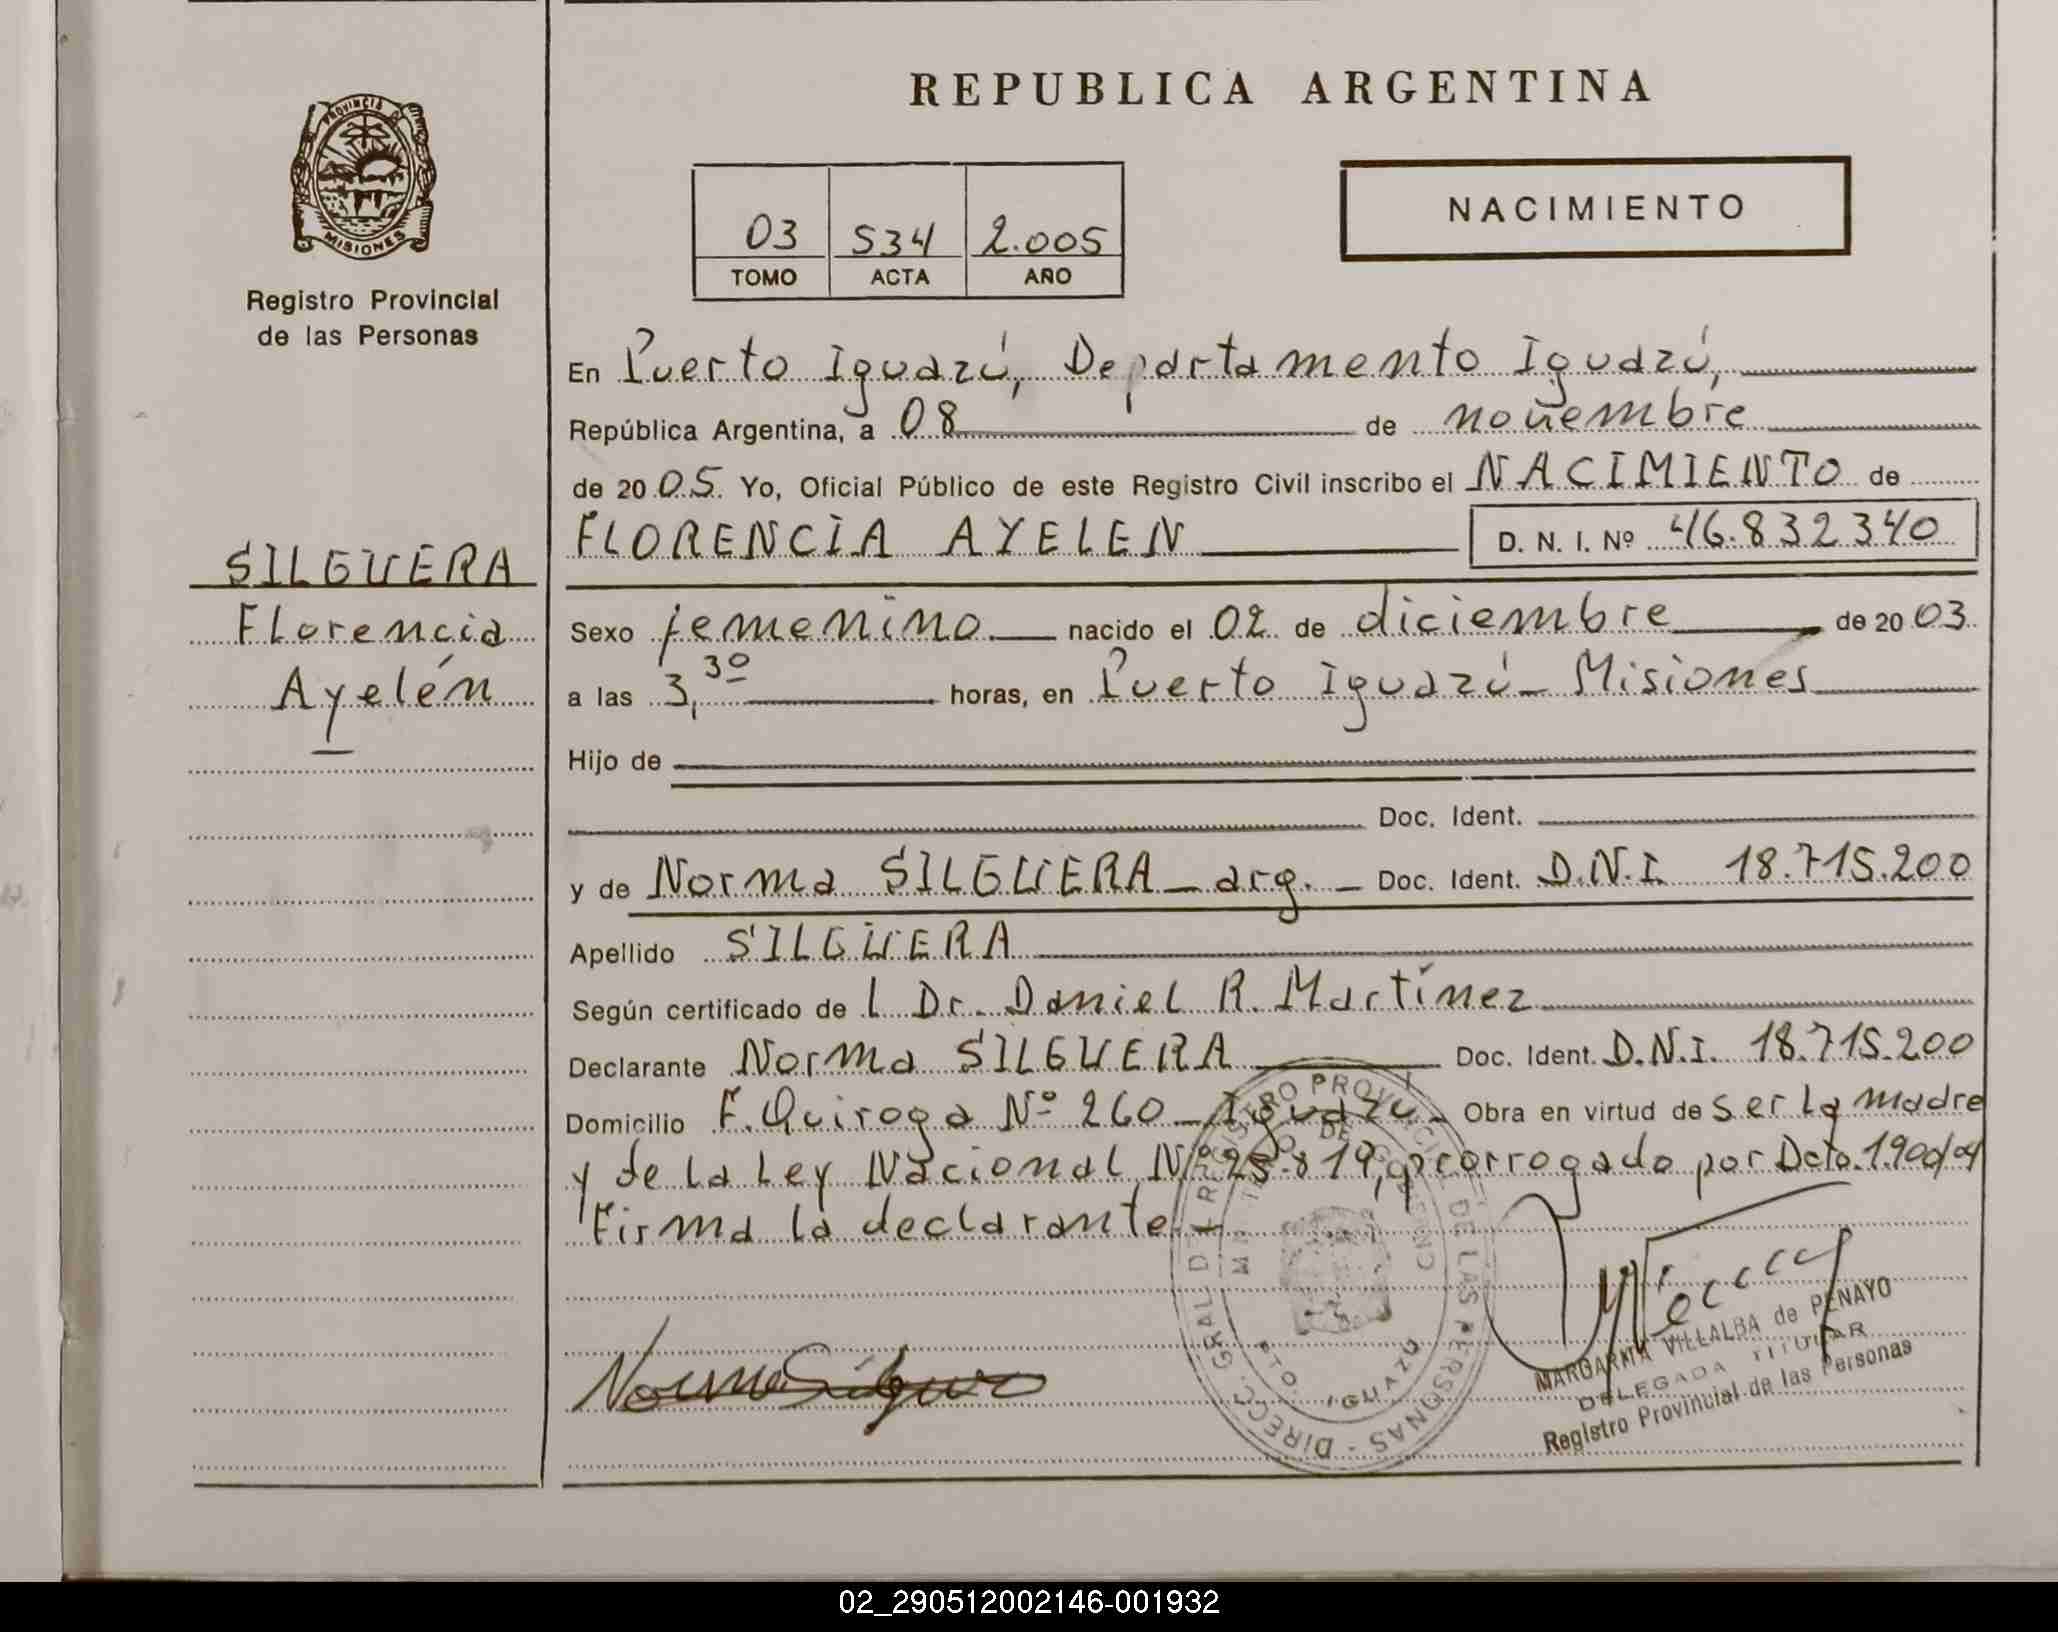 REPUBLICA ARGENTINA
PROVINCIA DE
MISIONES
Registro Provincial
de las Personas
NACIMIENTO
03 534 2.005
TOMO ACTA AÑO
En Puerto Iguazú, Departamento Iguazú,
República Argentina, a 08 de noviembre
de 2005 Yo, Oficial Público de este Registro Civil inscribo el NACIMIENTO de
FLORENCIA AYELEN D. N. I. Nº 46.832340
SILGUERA
Florencia
Ayelén
Sexo femenino nacido el 02 de diciembre de 2003
a las 3,30 horas, en Puerto Iguazú - Misiones
Hijo de
Doc. Ident.
y de Norma SILGUERA - arg. - Doc. Ident. D.N.I. 18.715.200
Apellido SILGUERA
Según certificado de l Dr. Daniel R. Martínez
Declarante Norma SILGUERA Doc. Ident. D.N.I. 18.715.200
Domicilio F. Quiroga Nº 260 - Iguazú - Obra en virtud de ser la madre
y de la Ley Nacional Nº 25.819, prorrogado por Dcto. 1.900/04
Firma la declarante.-
Norma Silguero
DIRECC. GRAL. DEL REGISTRO PROVINCIAL DE LAS PERSONAS
PTO. IGUAZU
MARGARITA VILLALBA de PENAYO
DELEGADA TITULAR
Registro Provincial de las Personas
02_290512002146-001932